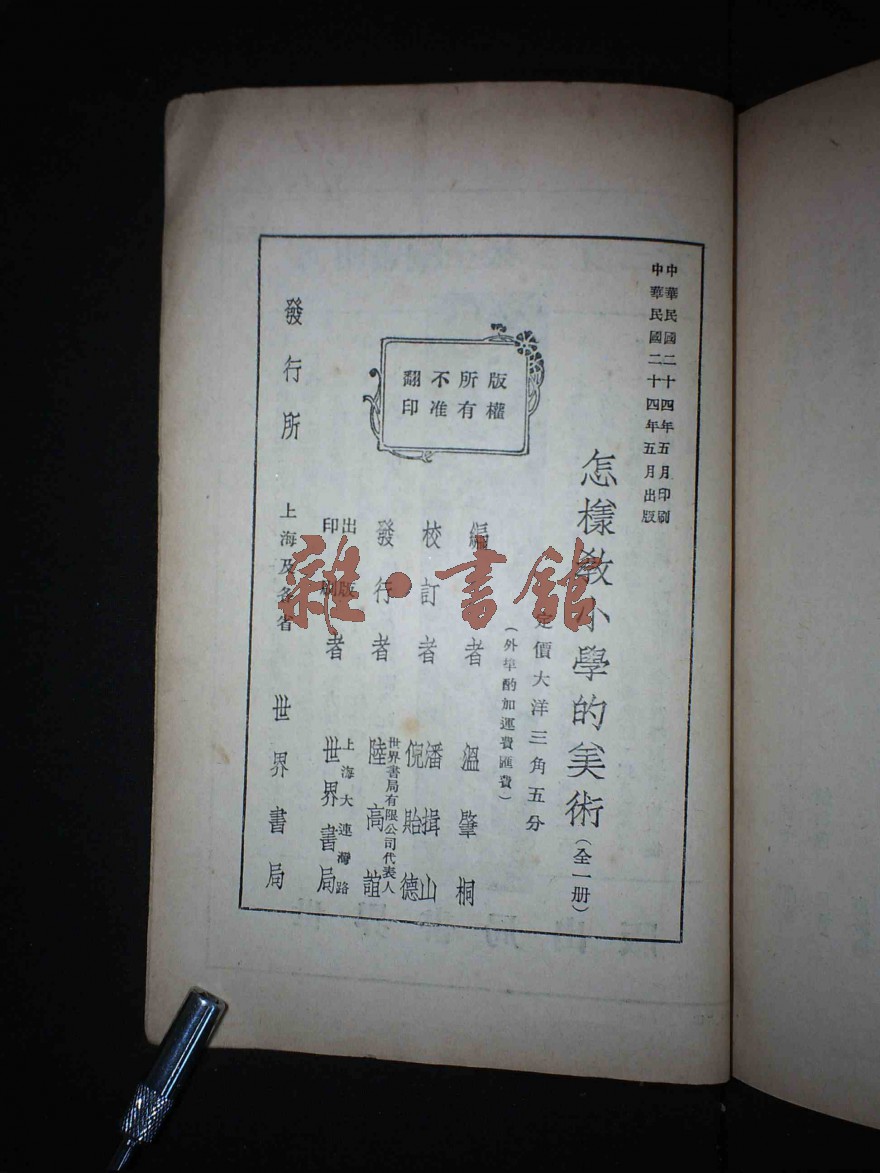 中華民國二十四年五月印刷
中華民國二十四年五月出版
怎樣敎小學的美術（全一册）
定價大洋三角五分
（外埠酌加運費匯費）
版權
所有
不准
翻印
編者 溫肇桐
校訂者 潘揖山 倪貽德
發行者 世界書局有限公司代表人 陸高誼
出版 印刷 者 上海大連灣路 世界書局
發行所 上海及各省 世界書局
雜·書館